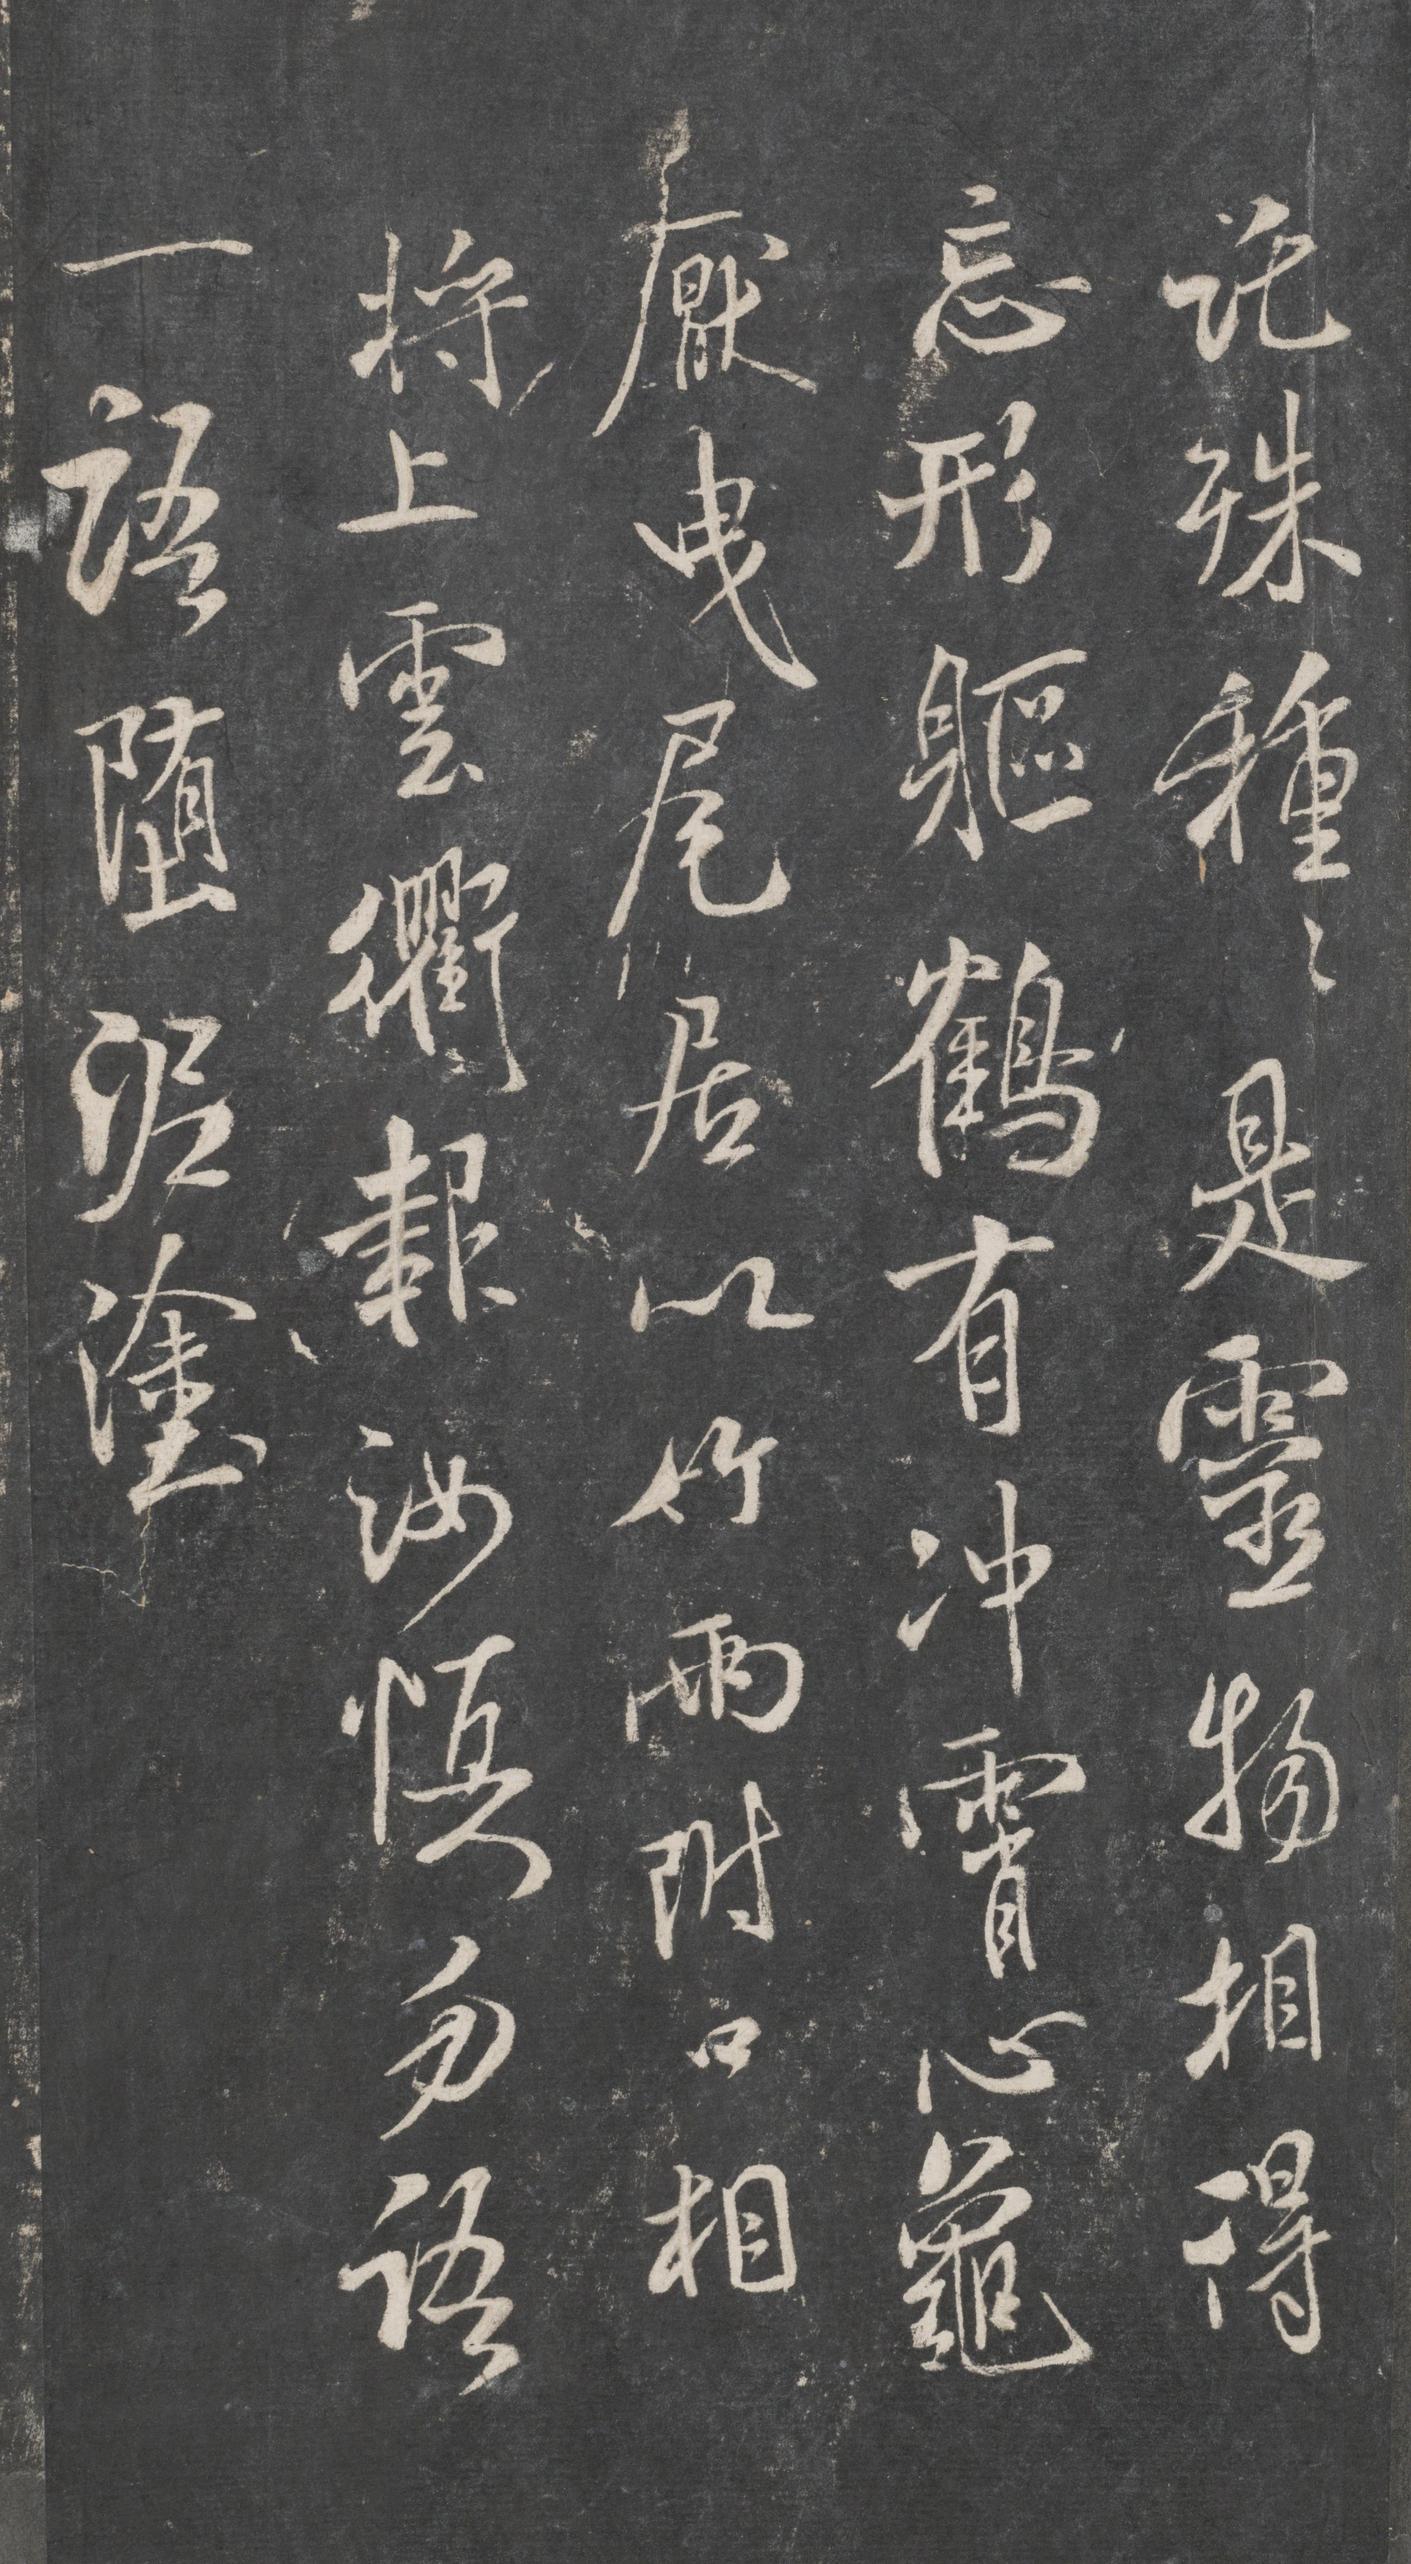 託殊種〻是靈物相得
忘形軀鶴有沖霄心龜
厭曳尾居以竹兩附口相
將上雲衢報汝慎勿語
一語墮泥塗